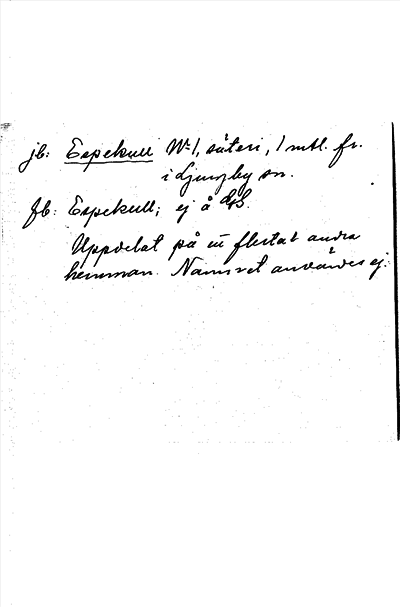 jb: Espekull No 1, säteri, 1 mtl. fr.
i Ljungby sn.
fb: Espekull; ej å GS.
Uppdelat på ett flertal andra
hemman. Namnet användes ej.